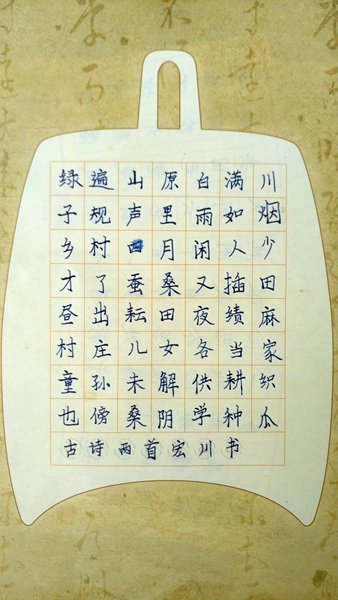 绿遍山原白满川
子规声里雨如烟
乡村四月闲人少
才了蚕桑又插田
昼出耘田夜绩麻
村庄儿女各当家
童孙未解供耕织
也傍桑阴学种瓜
古诗两首宏川书